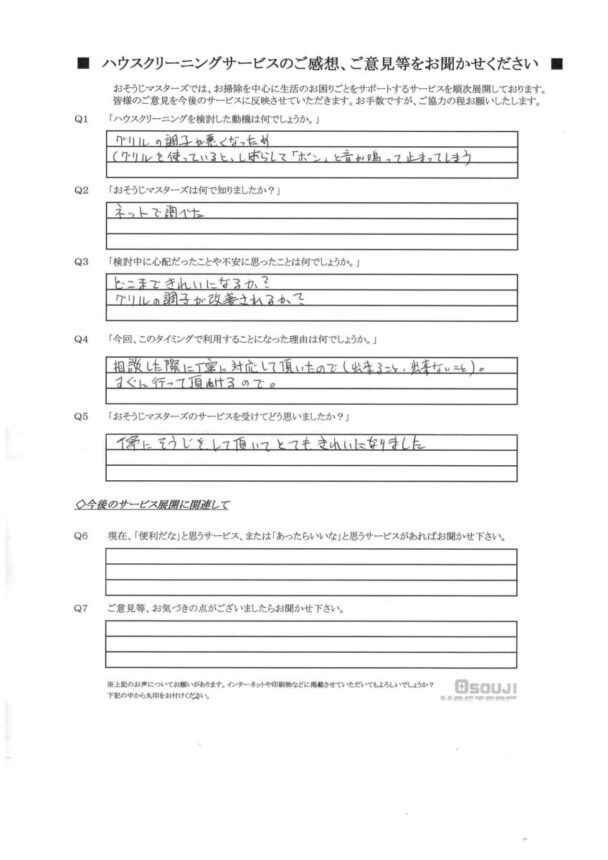 ■ ハウスクリーニングサービスのご感想、ご意見等をお聞かせください ■
おそうじマスターズでは、お掃除を中心に生活のお困りごとをサポートするサービスを順次展開しております。
皆様のご意見を今後のサービスに反映させていただきます。お手数ですが、ご協力の程お願いいたします。
Q1 「ハウスクリーニングを検討した動機は何でしょうか。」
グリルの調子が悪くなったため
(グリルを使っていると、しばらくして「ボン」と音が鳴って止まってしまう
Q2 「おそうじマスターズは何で知りましたか？」
ネットで調べた
Q3 「検討中に心配だったことや不安に思ったことは何でしょうか。」
どこまできれいになるか？
グリルの調子が改善されるか？
Q4 「今回、このタイミングで利用することになった理由は何でしょうか。」
相談した際に丁寧に対応して頂いたので(出来ること、出来ないこと)。
すぐに行って頂けるので。
Q5 「おそうじマスターズのサービスを受けてどう思いましたか？」
丁寧にそうじをして頂いてとてもきれいになりました
◇今後のサービス展開に関連して
Q6 現在、「便利だな」と思うサービス、または「あったらいいな」と思うサービスがあればお聞かせ下さい。
Q7 ご意見等、お気づきの点がございましたらお聞かせ下さい。
※上記のお声についてお願いがあります。インターネットや印刷物などに掲載させていただいてもよろしいでしょうか？
下記の中から丸印をお付けください。
OSOUJI
MASTERS